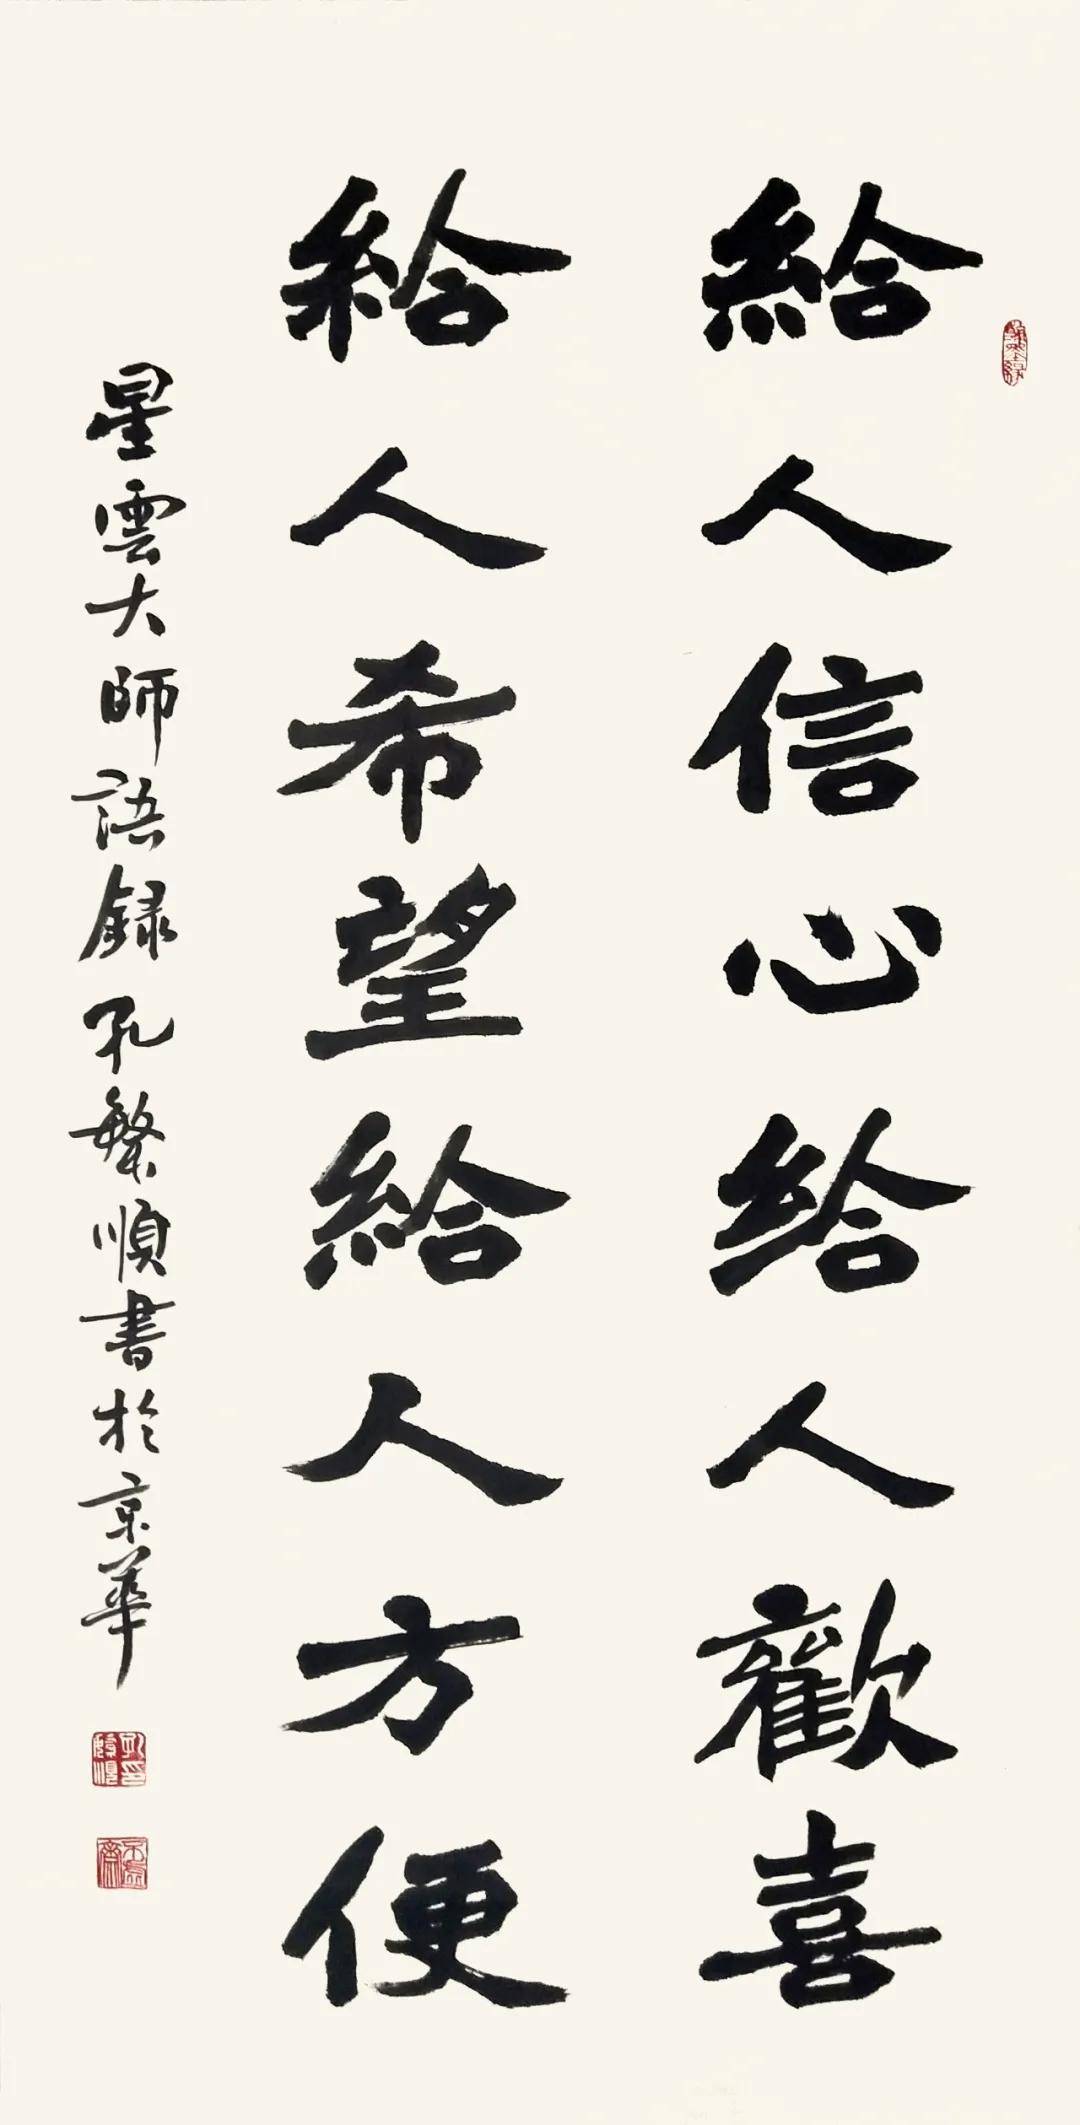 給人信心给人歡喜
給人希望給人方便
星雲大師語録孔繁順書於京華